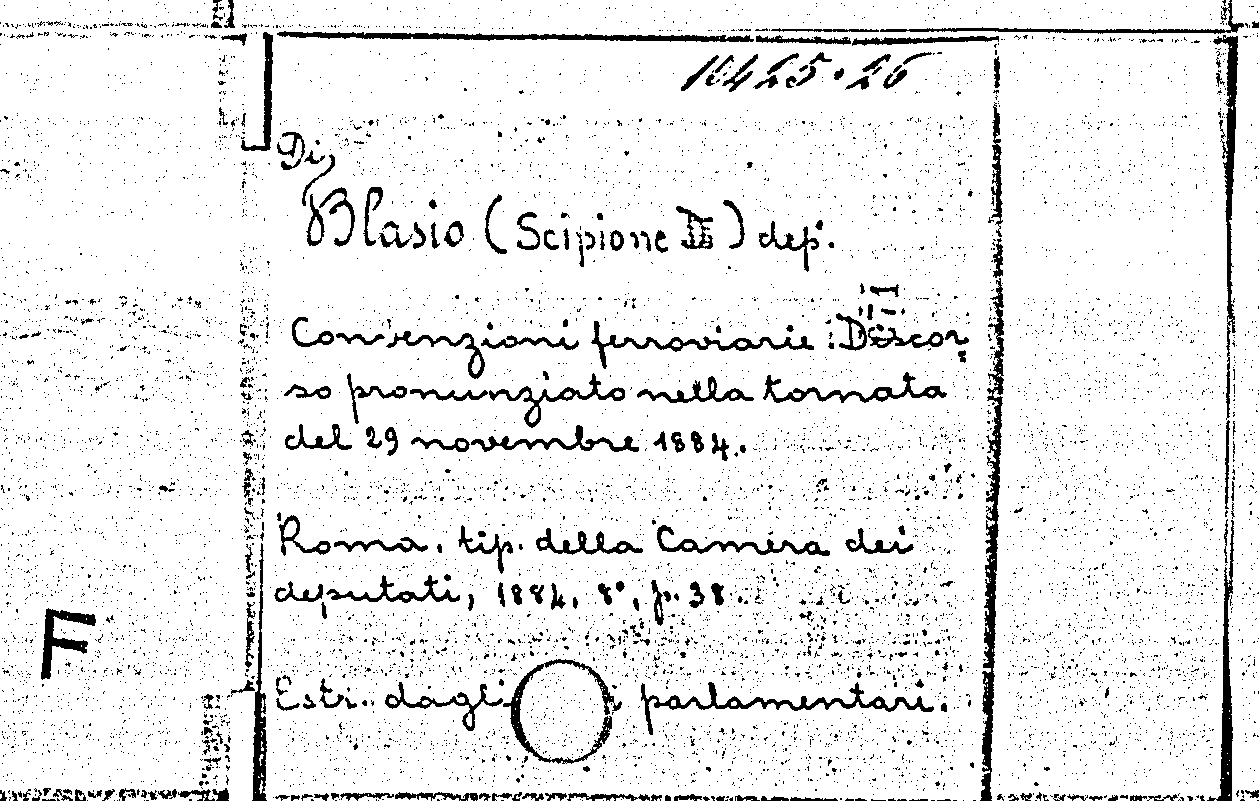 10425.26
Di
Blasio (Scipione) dep.
Convenzioni ferroviarie: Discor-
so pronunziato nella tornata
del 29 novembre 1884.
Roma, tip. della Camera dei
deputati, 1884, 8°, p. 38.
F
Estr. dagli parlamentari.